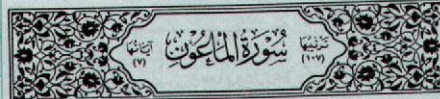 ترتيبها (١٠٧) سُورَةُ الْمَاعُونِ آياتها (٧)